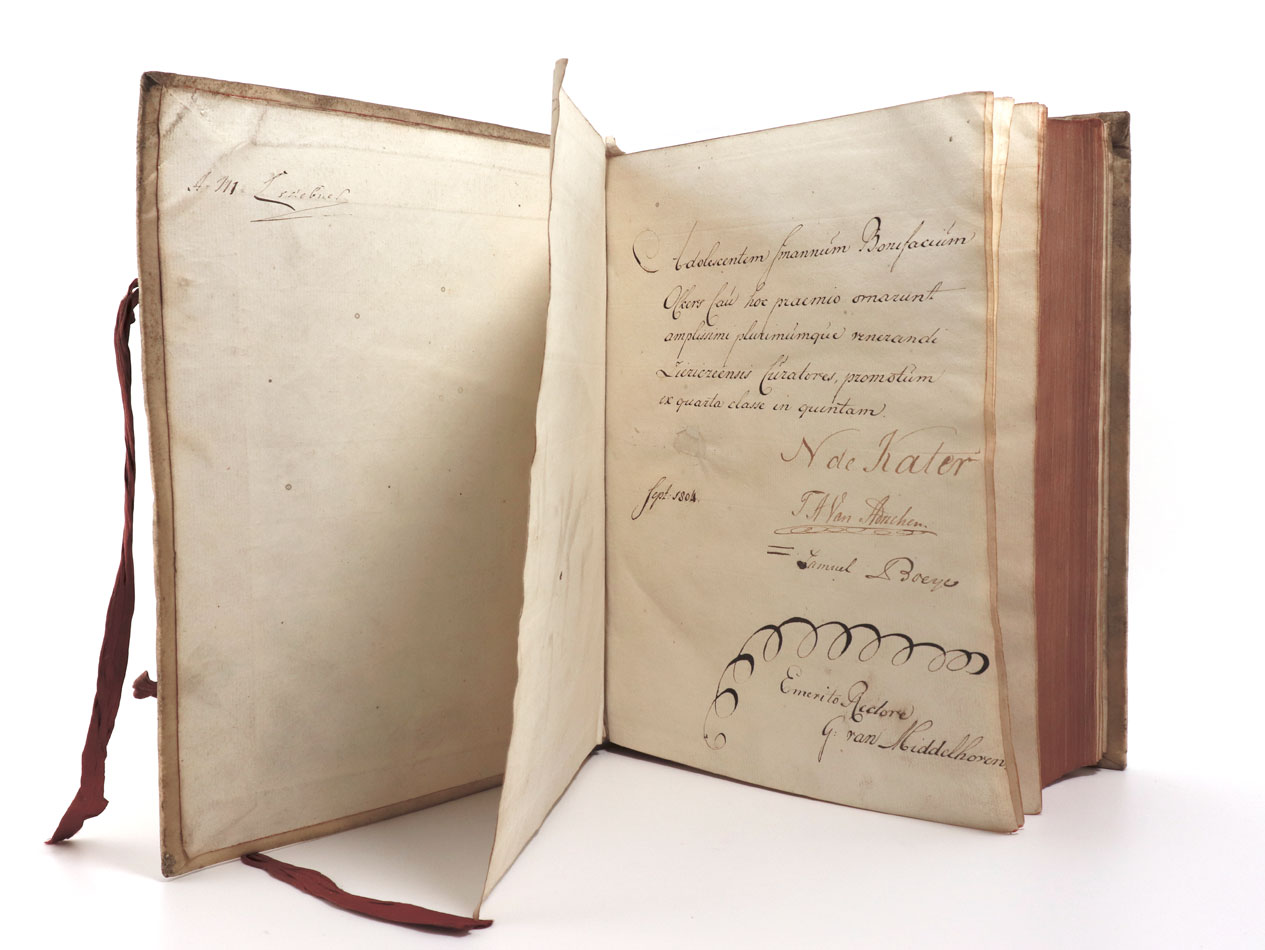 A. M.
Adolescentem Imannúm Bonifaciúm
Ockers Caú hoc praemio ornarunt
amplissimi plurimúmqúe venerandi
Ziericzeensis Cúratores, promotúm
ex quarta classe in quintam.
N de Kater
Sept: 1804.
Van
Samuel Boeye
Emerito Rectore
G: van Middelhoven